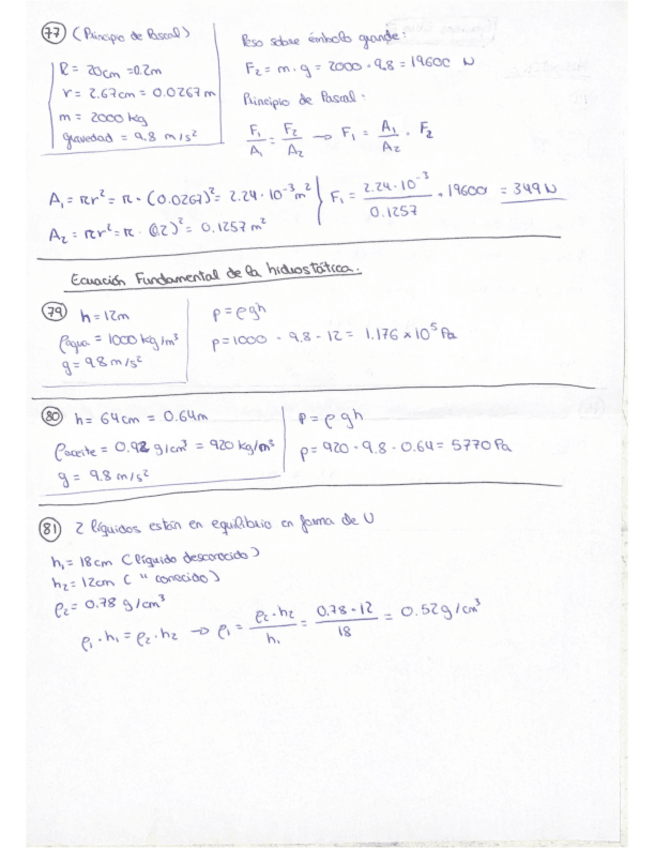 77 (Principio de Pascal)
R = 20cm = 0.2m
r = 2.67cm = 0.0267 m
m = 2000 kg
gravedad = 9.8 m/s²
Peso sobre émbolo grande:
F₂ = m · g = 2000 · 9.8 = 19600 N
Principio de Pascal:
F₁/A₁ = F₂/A₂ → F₁ = A₁/A₂ · F₂
A₁ = πr² = π · (0.0267)² = 2.24 · 10⁻³ m²
A₂ = πr² = π · (0.2)² = 0.1257 m²
F₁ = 2.24 · 10⁻³/0.1257 · 19600 = 349 N
Ecuación Fundamental de la hidrostática.
79 h = 12m
ρagua = 1000 kg/m³
g = 9.8 m/s²
p = ρgh
p = 1000 · 9.8 · 12 = 1.176 × 10⁵ Pa
80 h = 64cm = 0.64m
ρaceite = 0.92 g/cm³ = 920 kg/m³
g = 9.8 m/s²
p = ρgh
p = 920 · 9.8 · 0.64 = 5770 Pa
81 2 líquidos están en equilibrio en forma de U
h₁ = 18cm (líquido desconocido)
h₂ = 12cm ( " conocido)
ρ₂ = 0.78 g/cm³
ρ₁ · h₁ = ρ₂ · h₂ → ρ₁ = ρ₂ · h₂/h₁ = 0.78 · 12/18 = 0.52 g/cm³